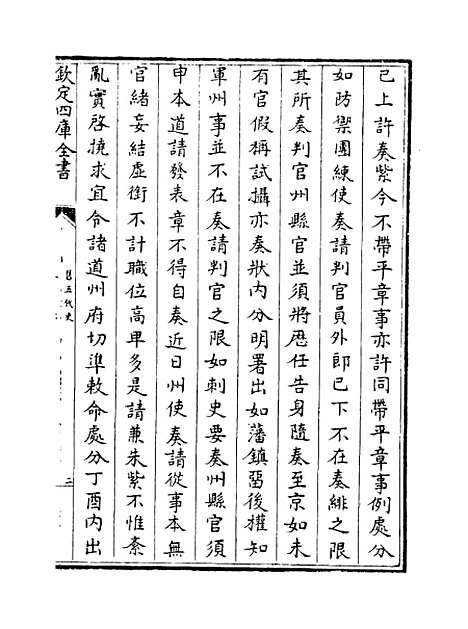 已上許奏紫今不帶平章事亦許同帶平章事例處分
如防禦團練使奏請判官員外郎已下不在奏緋之限
其所奏判官州縣官並須將歷任告身隨奏至京如未
有官假稱試攝亦奏狀内分明署出如藩鎮留後權知
軍州事並不在奏請判官之限如刺史要奏州縣官須
申本道請發表章不得自奏近日州使奏請從事本無
官緒妄結虛銜不計職位高卑多是請兼朱紫不惟紊
亂實啓撓求宜令諸道州府切準敕命處分丁酉内出
欽定四庫全書
舊五代史
二